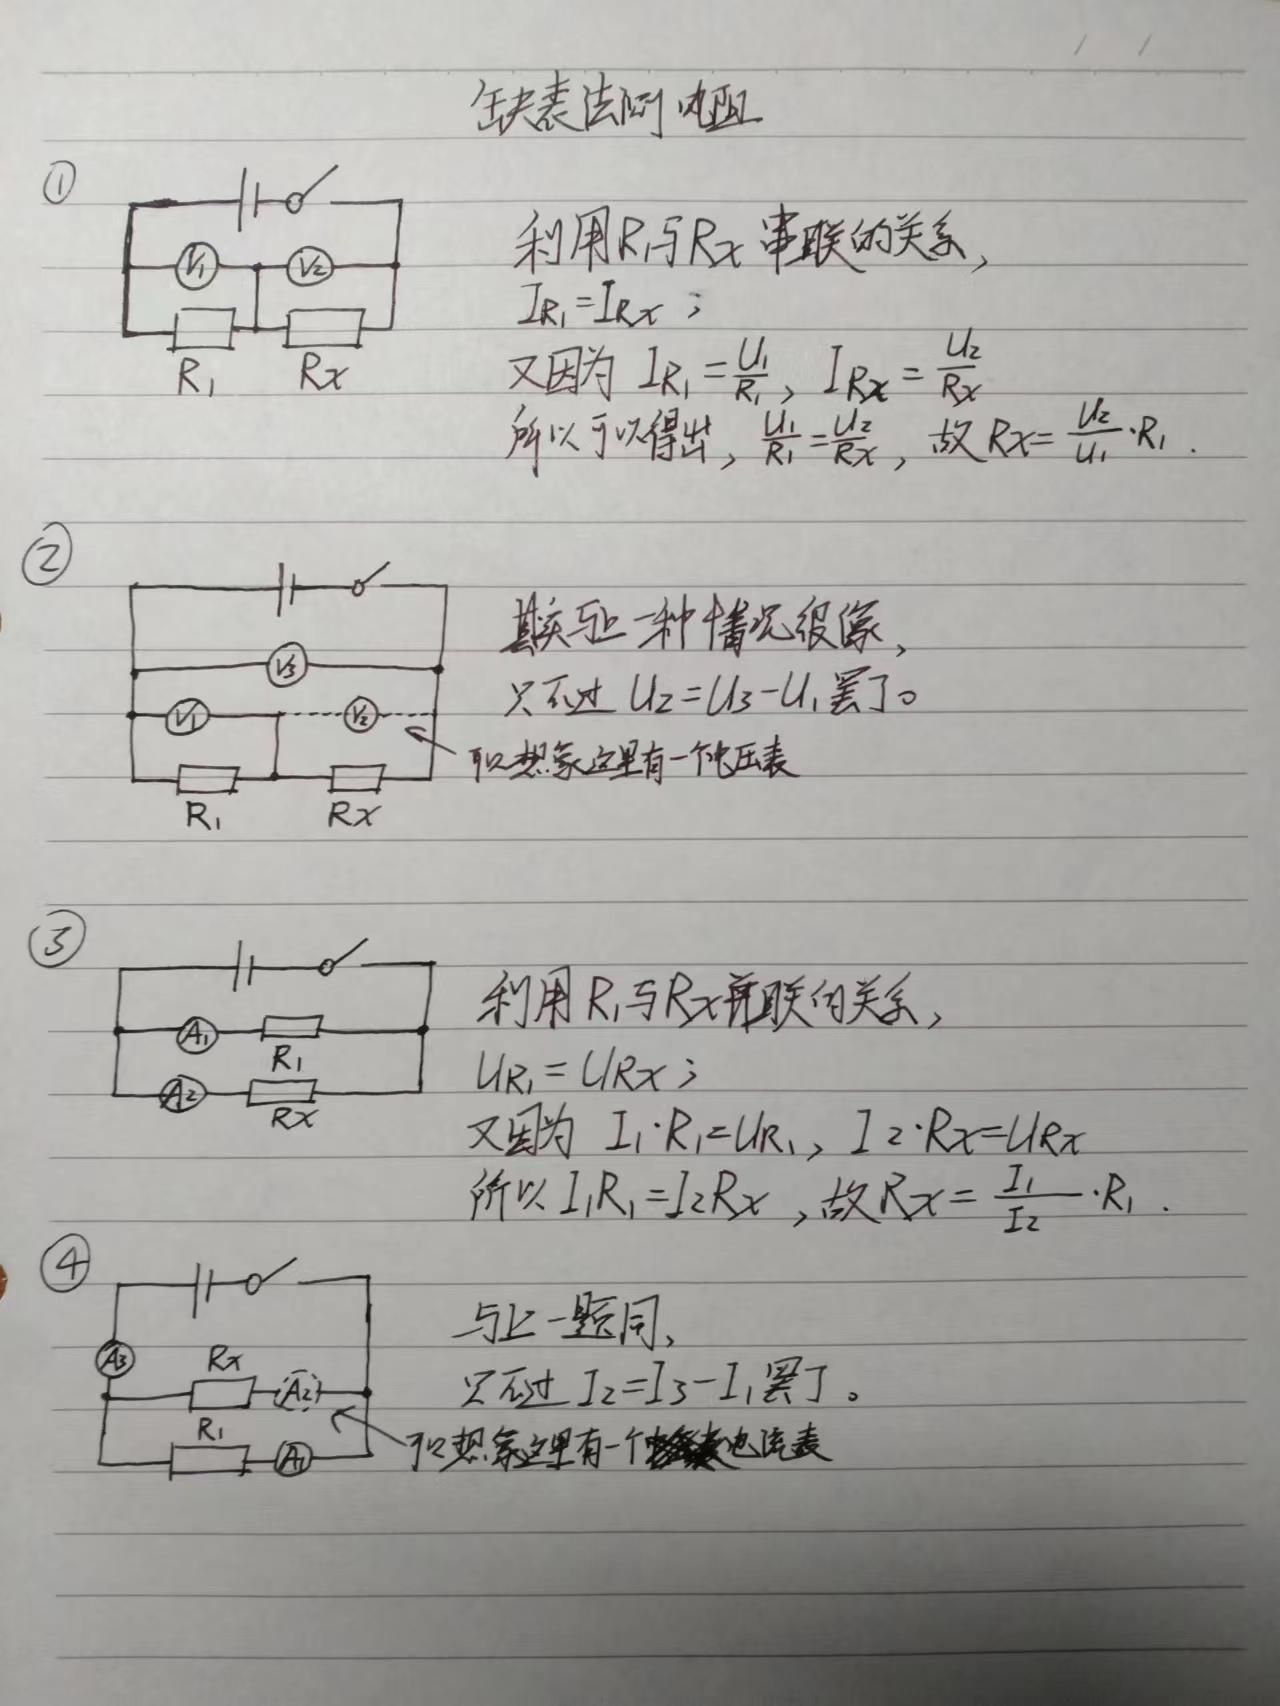 缺表法测电阻
①
V1 V2
R1 Rx
利用R1与Rx串联的关系,
IR1=IRx;
又因为 IR1=U1/R1, IRx=U2/Rx
所以可以得出, U1/R1=U2/Rx, 故Rx=U2/U1·R1.
②
V3
V1 V2
R1 Rx
其实与上一种情况很像,
只不过 U2=U3-U1罢了。
可以想象这里有一个电压表
③
A1 R1
A2 Rx
利用R1与Rx并联的关系,
UR1=URx;
又因为 I1·R1=UR1, I2·Rx=URx
所以I1R1=I2Rx, 故Rx=I1/I2·R1.
④
A3
Rx A2
R1 A1
与上一题同,
只不过 I2=I3-I1罢了。
可以想象这里有一个电流表